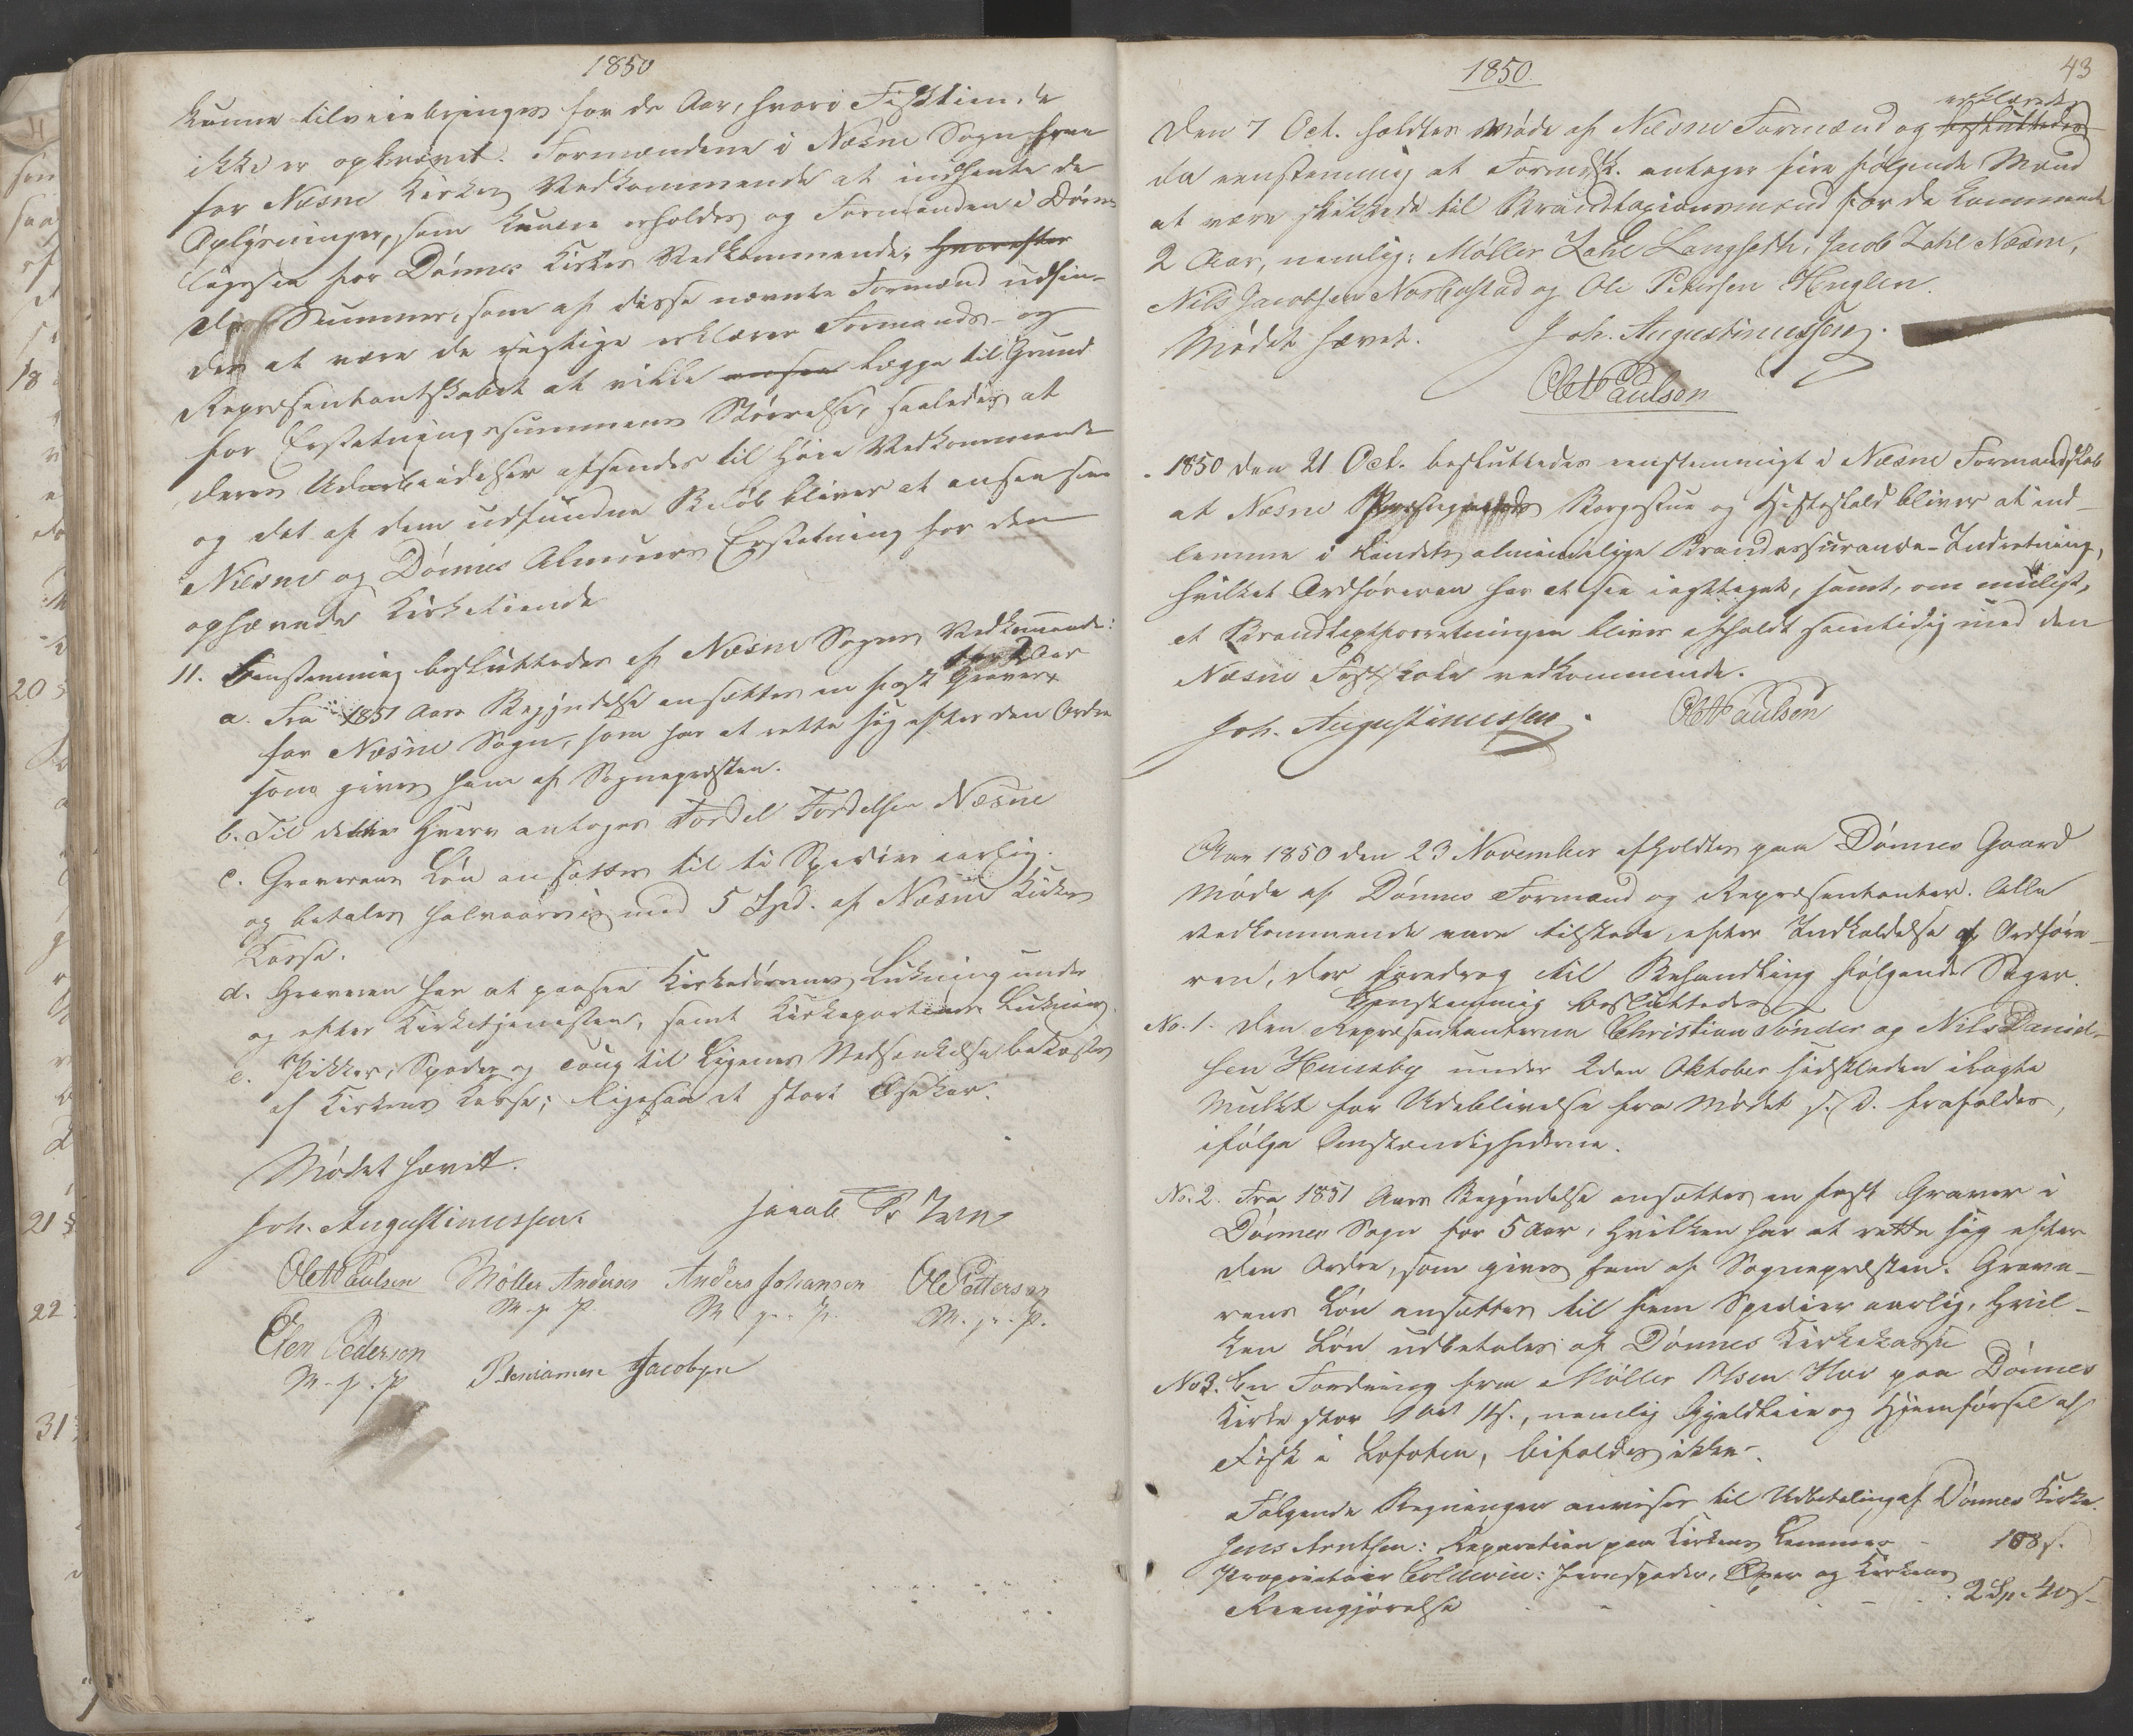 1850
kunne tilveiebringes for de Aar, hvori Fisktiende
ikke er opkrævet. Formændene i Næsne Sogn have
for Næsne Kirkes Vedkommende at indhente de
Oplysninger, som kunne erholdes og Formænden i Dønnes
ligesaa for Dønnes Kirkes Vedkommende, hvorefter
de Summer, som af disse nævnte Formænd udfin-
des at være de rigtige erklærer Formands- og
Repræsentantskabet at ville ansee lægge til Grund
for Erstatningssummens Størrelse, saaledes at
deres Udarbeidelser afsendes til høie Vedkommende
og det af dem udfundne Beløb bliver at ansee som
Næsne og Dønnes Almues Erstatning for den
ophævede Kirketiende
11. Eenstemmig besluttedes af Næsne Sogns Vedkommende:
a. Fra 1851 Aars Begyndelse ansættes en fast Graver
for Næsne Sogn, som har at rette sig efter den Ordre
som gives ham af Sognepresten.
b. Til dette Hverv antages Tordel Tordelsen Næsne
c. Graverens Løn ansættes til ti Spedier aarlig
og betales halvaarsvis med 5 Spd. af Næsne Kirkes
Kasse.
d. Graveren har at paasee Kirkedørenes Lukning under
og efter Kirketjenesten, samt Kirkeportenes Lukning
e. Pikker, Spader og Toug til Ligenes Nedsænkelse bekostes
af Kirkens Kasse; ligesaa et stort Øsekar.
Mødet hævet.
Joh. Augustinussen. Jacob
Ole Paulsen Møller Anderses Anders Johansen Ole Petterson
M. p. P. M. p. P. M. p. P.
Elen Pederson
M. p. P. Beniamen Jacobsen
1850. 43
erklærede
Den 7 Oct. holdtes Møde af Næsne Formænd og besluttedes
da eenstemmig at Formsk. antager fire følgende Mænd
at være skikkede til Brandtaxionsmænd for de kommende
2 Aar, nemlig: Møller Zahl Langseth, Jacob Zahl Næsne,
Nils Jacobsen Norbostad og Ole Petersen Huglen.
Mødet hævet. Joh. Augustinussen.
Ole Paulsen
1850 den 21 Oct. besluttedes eenstemmigt i Næsne Formandskab
at Næsne Præstegaards Borgestue og Hestestald bliver at ind-
lemme i Landets almindelige Brandassurance-Indretning,
hvilket Ordføreren har at see iagttaget, samt, om muligt,
at Brandtaxtforretningen bliver afholdt samtidig med den
Næsne Fastskole vedkommende.
Joh. Augustinussen. Ole Paulsen
Aar 1850 den 23 November afholdtes paa Dønnes Gaard
Møde af Dønnes Formænd og Repræsentanter. Alle
Vedkommende vare tilstede, efter Indkaldelse af Ordføre-
ren, der foredrog til Behandling følgende Sager.
Eenstemmig besluttedes
No. 1. Den Repræsentanterne Christian Tønder og Nils Daniel-
sen Hunsby under 2den Oktober sidstleden ilagte
Mulkt for Udeblivelse fra Mødet s. D. frafaldes,
ifølge Omstændighederne.
No. 2. Fra 1851 Aars Begyndelse ansættes en fast Graver i
Dønnes Sogn for 5 Aar, hvilken har at rette sig efter
den Ordre, som gives ham af Sognepresten. Grave-
rens Løn ansættes til fem Spedier aarlig, hvil-
ken Løn udbetales af Dønnes Kirkekasse
No 3. En Fordring fra Møller Olsen Hov paa Dønnes
Kirke stor 1 11 s., nemlig Gjeldleie og Hjemførsel af
Fisk i Lofoten, bifaldes ikke.
Følgende Regninger anvises til Udbetaling af Dønnes Kirke.
Jens Arntsen: Reparation paa Kirkens - 108 s.
Proprietair Coldevin: Jernspader, og Kirkens
Reengjørelse - - - 2 Sp. 40 s.